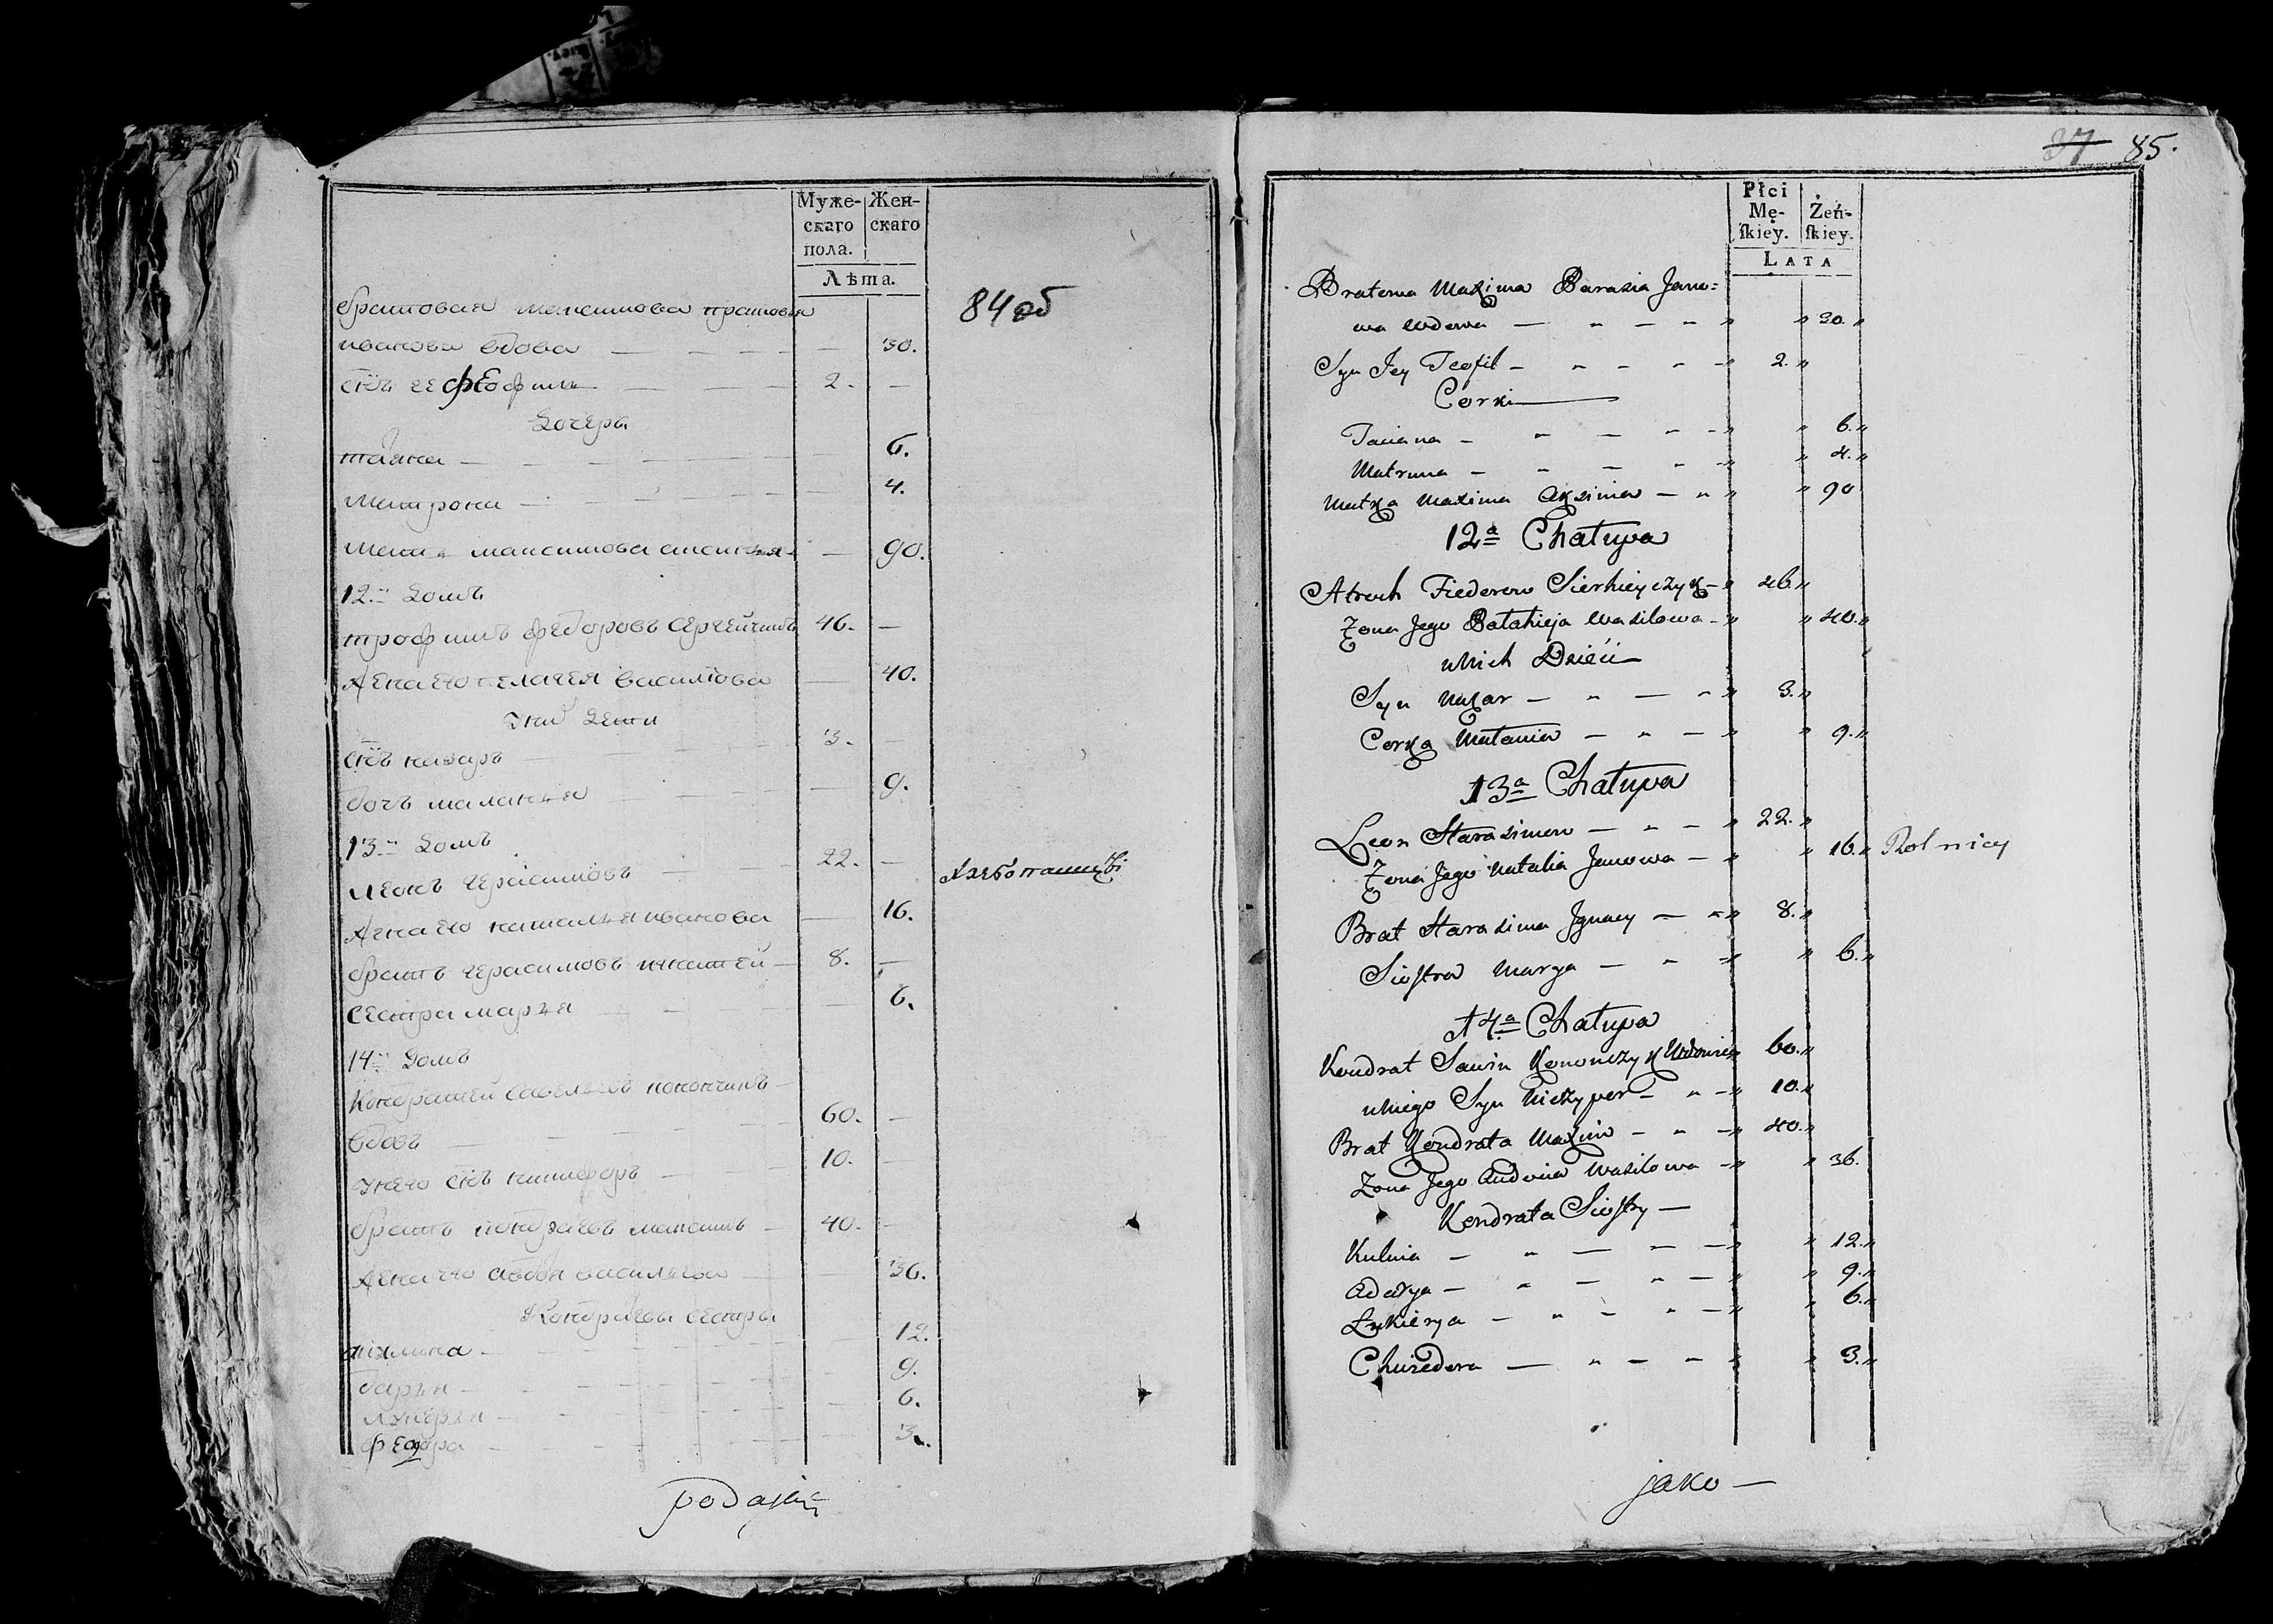 Муже-
скаго
пола.
Жен-
скаго
Лѣта.
84 об
братовая максимова прасковья
иванова вдова — 30.
сн҃ъ ее феофилъ — 2. —
дочеры
татяна — 6.
матрона — 4.
мать максимова аксинья — 90.
12й домъ
трофимъ федоровъ сергейчикъ 46. —
жена его пелагея васильова — 40.
у нихъ дети
сн҃ъ назаръ — 3. —
дочь маланья — 9.
13й домъ
леонъ герасимовъ — 22. — хлебопашцы
жена его наталья иванова — 16.
братъ герасимовъ игнатей — 8. —
сестра марья — 6.
14й домъ
Кондратей савельевъ конончикъ
вдовъ — 60. —
у него сн҃ъ никифоръ — 10. —
братъ кондратьевъ максимъ — 40. —
жена его авдотя васильева — 36.
Кондратьевы сестры
акилина — 12.
дарья — 9.
лукерья — 6.
федора — 3.
37 85.
Płci
Mę-
ſkiey.
Żeń-
ſkiey.
LATA
Bratowa Maxima Parasia Jano=
wa wdowa — 30.
Syn Jey Teofil — 2.
Corki
Taciana — 6.
Matruna — 4.
Matka Maxima Axinia — 90
12a Chałupa
Atroch Fiedorow Sierhieyczyk — 46.
Żona Jego Pałahieja Wasilowa — 40.
u Nich Dzieci
Syn Nazar — 3.
Corka Małania — 9.
13a Chałupa
Leon Harasimow — 22.
Żona Jego Natalia Janowa — 16. Rolnicy
Brat Harasima Jgnacy — 8.
Siostra Marya — 6.
14a Chałupa
Kondrat Sawin Kononczyk Wdowiec 60.
u Niego Syn Niczypor — 10.
Brat Kondrata Maxim — 40.
Żona Jego Audocia Wasilowa — 36.
Kondrata Siostry —
Kulina — 12.
Adarya — 9.
Łukierya — 6.
Chwiedora — 3.
jako —